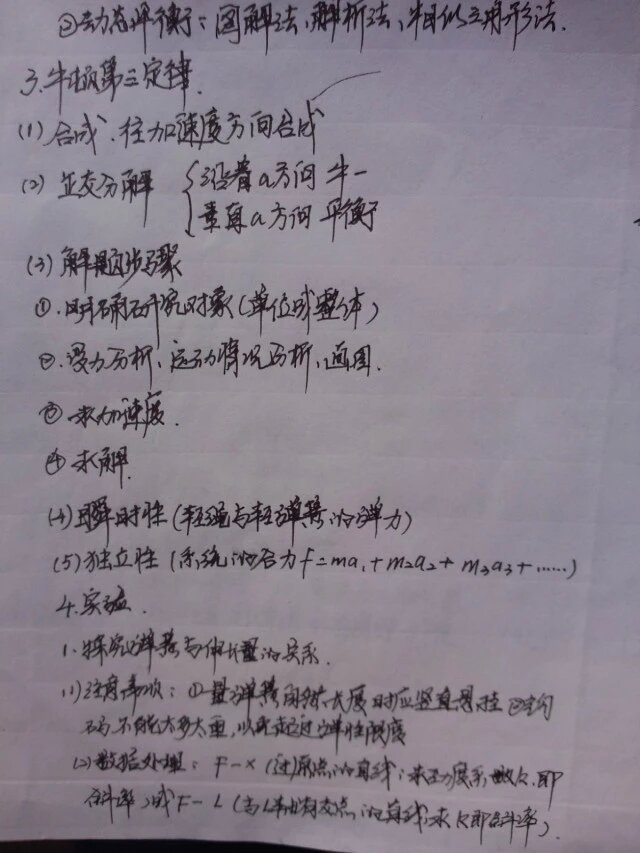 ②动态平衡：图解法、解析法、相似三角形法.
3.牛顿第三定律.
(1)合成、往加速度方向合成
(2)正交分解 { 沿着a方向 牛一
垂直a方向 平衡
(3)解题步骤
①.明确研究对象(单位或整体)
②.受力分析、运动情况分析、画图.
③求加速度.
④求解.
(4)瞬时性(轻绳与轻弹簧的弹力)
(5)独立性(系统的合力F=ma₁+m₂a₂+m₃a₃+……)
4.实验.
1.探究弹簧与伸长量的关系.
(1)注意事项：①量弹簧自然长度时应竖直悬挂②钩
码不能太多太重,以防超过弹性限度
(2)数据处理：F-x(过原点的直线;求劲度系数k,即
斜率)或F-L(与L轴有交点的直线,求k即斜率).